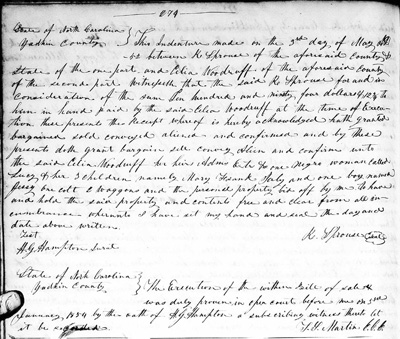 274
State of North Carolina
Yadkin County } This Indenture made on the 3rd day of May
between R Sprouse of the aforesaid County &
State of the one part and Celia Woodruff of the aforesaid county
of the second part Witnesseth that the said R Sprouse for and in
Consideration of the sum Ten hundred and ninty four dollars to
him in hand paid by the said Celia Woodruff at the time of Execu-
tion these presents the Receipt whereof is hereby acknowledged hath granted
bargained sold conveyed aliend and confirmed and by these
presents doth grant bargain sell convey alien and confirm unto
the said Celia Woodruff her heirs Adms &c to one Negro woman called
Lucy & her 3 children namely Mary Frank and one boy named
one colt 2 waggons and the personal property bid off by me To have
and hold the said property and contents free and clear from all in-
cumbrance whereunto I have set my hand and seal the day and
date above written.
Test R. Sprouse Seal
H. G. Hampton Jurat
State of North Carolina
Yadkin County } The Execution of the within Bill of sale
was duly proven in open court before me on
January 1854 by the oath of H G Hampton a subscribing witness thereto let
it be recorded
Martin